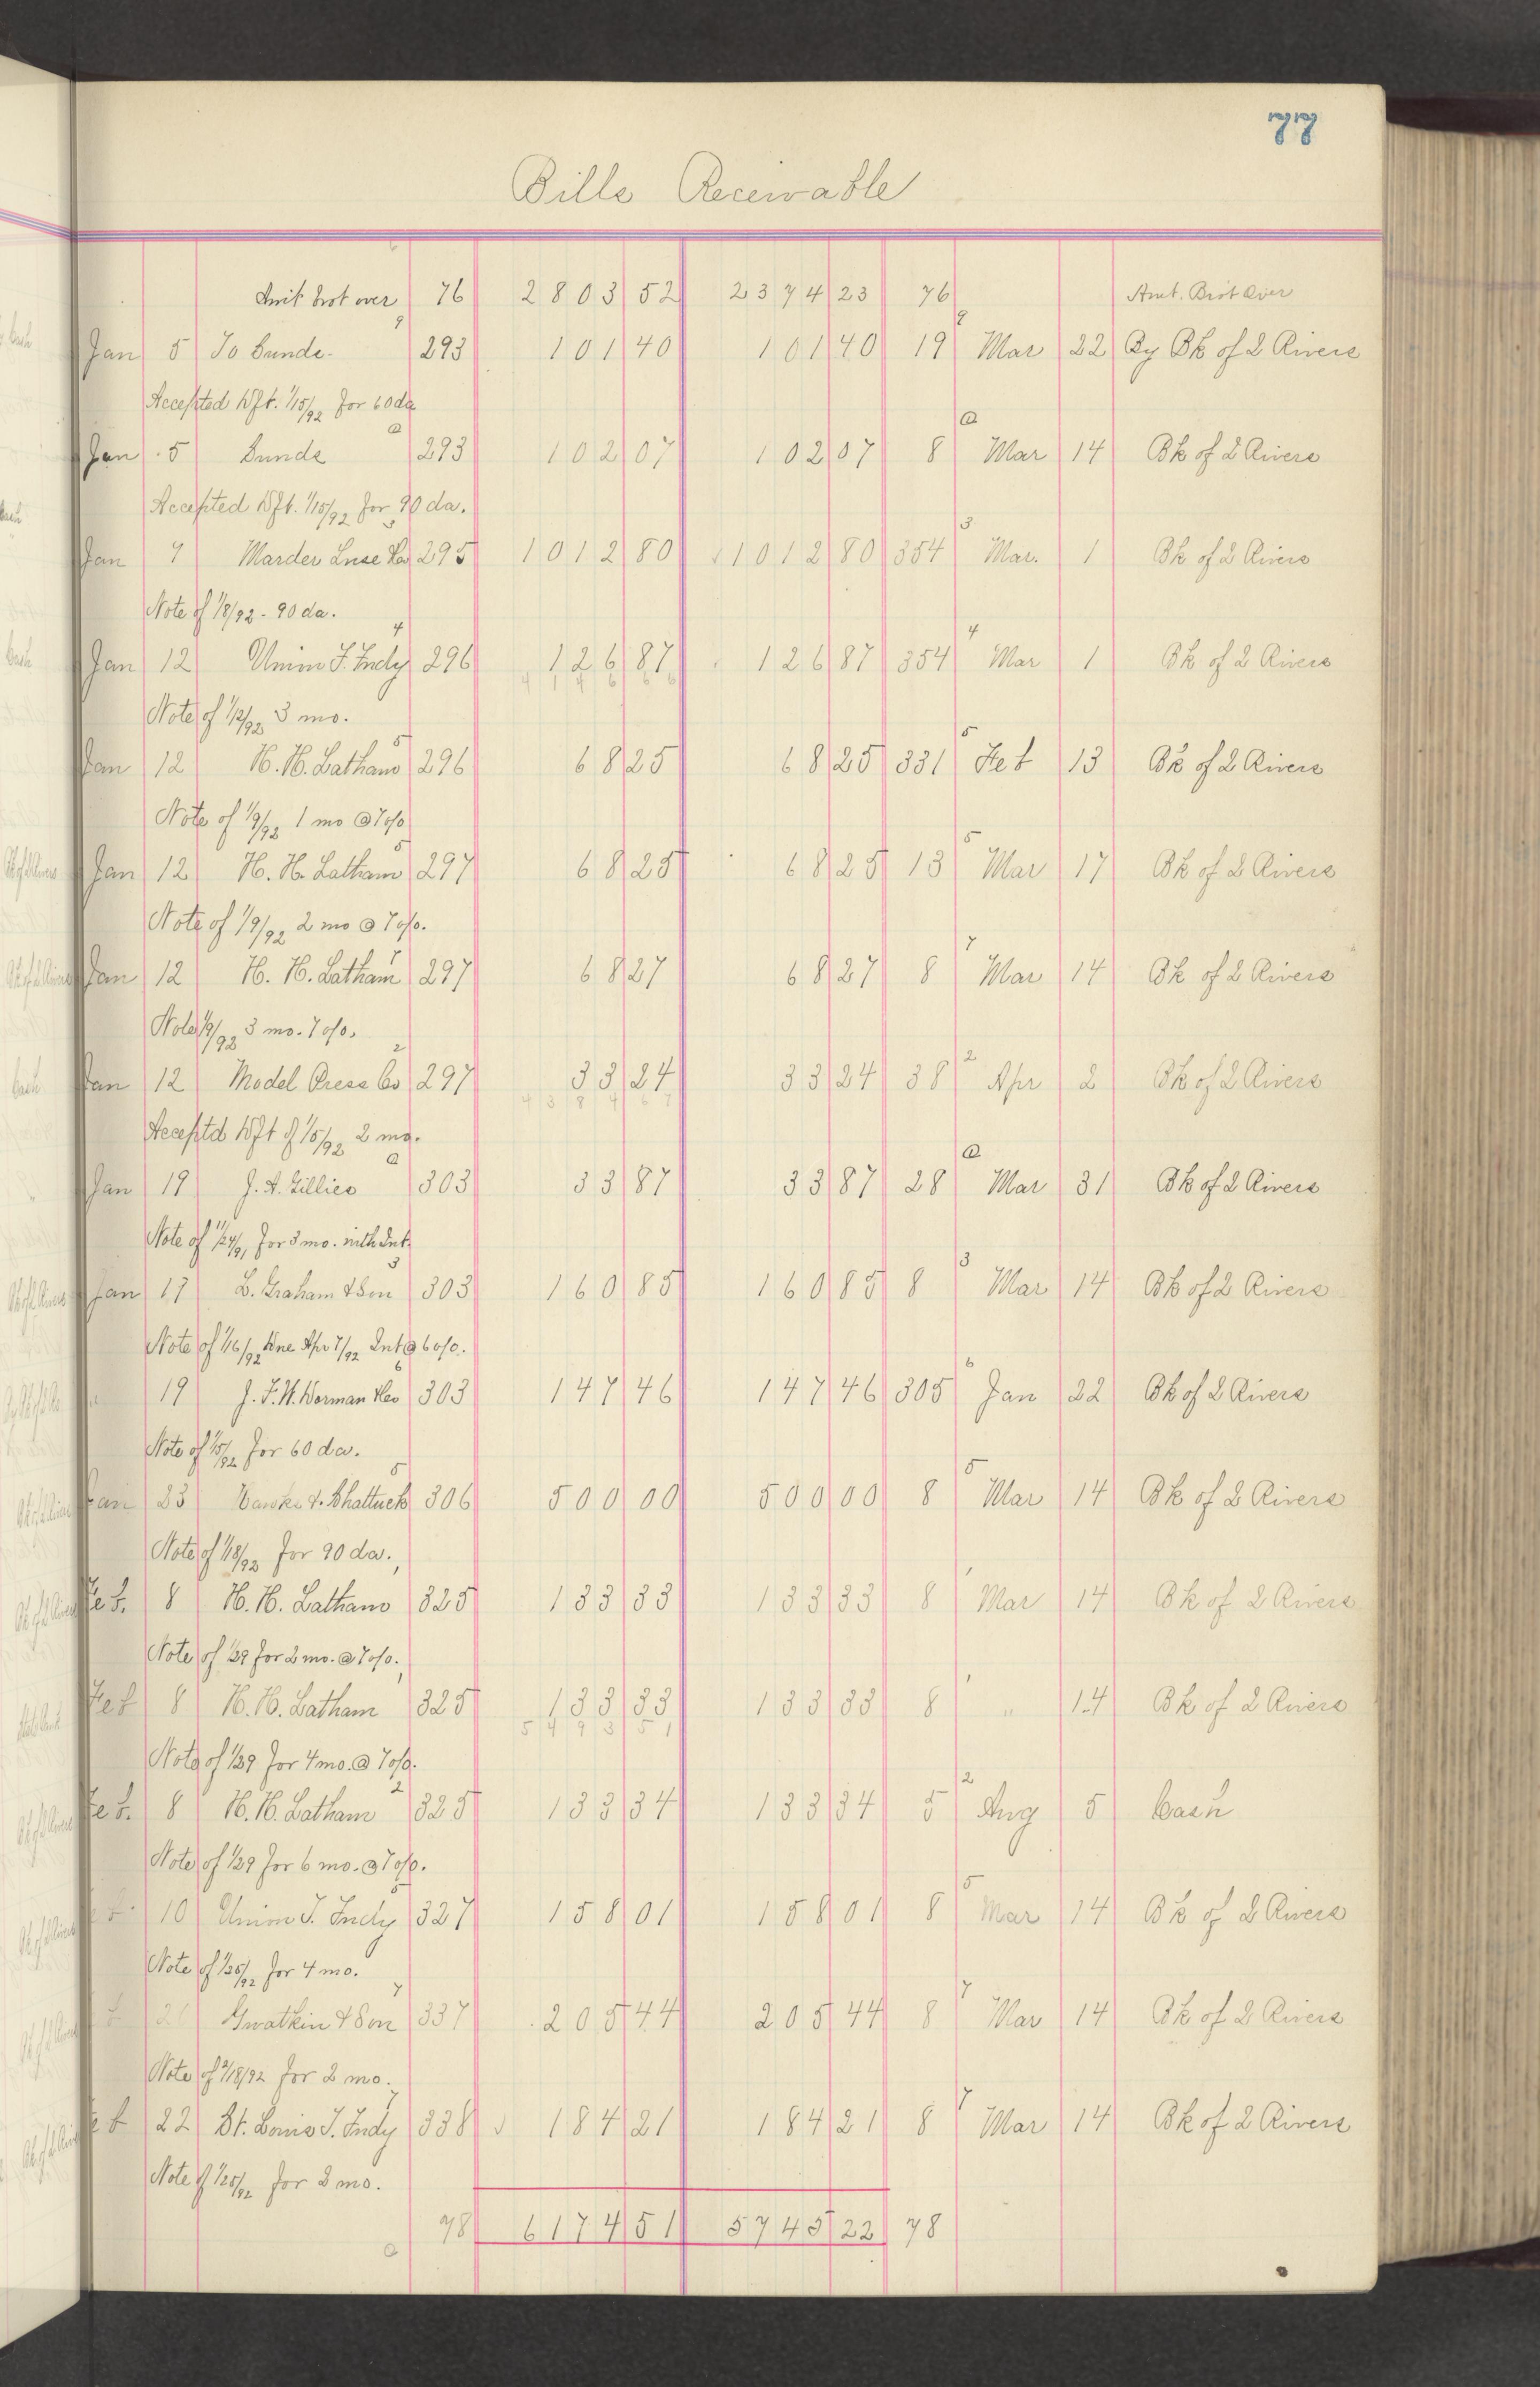 77
Bills Receivable
Amt brot over 76 2803 52 2374 23 76 Amt. Brot Over
9 9
Jan 5 To Sunds. 293 101 40 101 40 19 Mar 22 By Bk of 2 Rivers
Accepted Dft. 1/15/92 for 60 da
@ @
Jan 5 Sunds 293 102 07 102 07 8 Mar 14 Bk of 2 Rivers
Accepted Dft. 1/15/92 for 90 da.
3 3
Jan 9 Marder Luse &Co 295 1012 80 1012 80 354 Mar. 1 Bk of 2 Rivers
Note of 1/8/92 - 90 da.
4 4
Jan 12 Union T. Fndy 296 126 87 126 87 354 Mar 1 Bk of 2 Rivers
4 1 4 6 6 6
Note of 1/12/92 3 mo.
5 5
Jan 12 H. H. Latham 296 68 25 68 25 331 Feb 13 Bk of 2 Rivers
Note of 1/9/92 1 mo @ 7 o/o
5 5
Jan 12 H. H. Latham 297 68 25 68 25 13 Mar 17 Bk of 2 Rivers
Note of 1/9/92 2 mo @ 7 o/o.
7 7
Jan 12 H. H. Latham 297 68 27 68 27 8 Mar 14 Bk of 2 Rivers
Note 1/9/92 3 mo. 7 o/o.
2 2
Jan 12 Model Press Co 297 33 24 33 24 38 Apr 2 Bk of 2 Rivers
4 3 8 4 6 7
Acceptd Dft of 1/5/92 2 mo.
@ @
Jan 19 J. A. Gillies 303 33 87 33 87 28 Mar 31 Bk of 2 Rivers
Note of 11/24/91 for 3 mo. with Int.
3 3
Jan 19 L. Graham & Son 303 160 85 160 85 8 Mar 14 Bk of 2 Rivers
Note of 1/16/92 Due Apr 7/92 Int @ 6 o/o.
6 6
19 J. F. W. Dorman &Co 303 147 46 147 46 305 Jan 22 Bk of 2 Rivers
Note of 1/5/92 for 60 da.
5 5
Jan 23 Hawks & Shattuck 306 500 00 500 00 8 Mar 14 Bk of 2 Rivers
Note of 1/18/92 for 90 da.
Feb. 8 H. H. Latham 325 133 33 133 33 8 Mar 14 Bk of 2 Rivers
Note of 1/29 for 2 mo. @ 7 o/o.
Feb 8 H. H. Latham 325 133 33 133 33 8 " 14 Bk of 2 Rivers
5 4 9 3 5 1
Note of 1/29 for 4 mo. @ 7 o/o.
2 2
Feb. 8 H. H. Latham 325 133 34 133 34 5 Aug 5 Cash
Note of 1/29 for 6 mo. @ 7 o/o.
5 5
10 Union T. Fndy 327 158 01 158 01 8 Mar 14 Bk of 2 Rivers
Note of 1/25/92 for 4 mo.
7 7
20 Gwatkin & Son 337 205 44 205 44 8 Mar 14 Bk of 2 Rivers
Note of 2/18/92 for 2 mo.
7 7
Feb 22 St. Louis T. Fndy 338 184 21 184 21 8 Mar 14 Bk of 2 Rivers
Note of 1/25/92 for 3 mo.
78 6174 51 5745 22 78